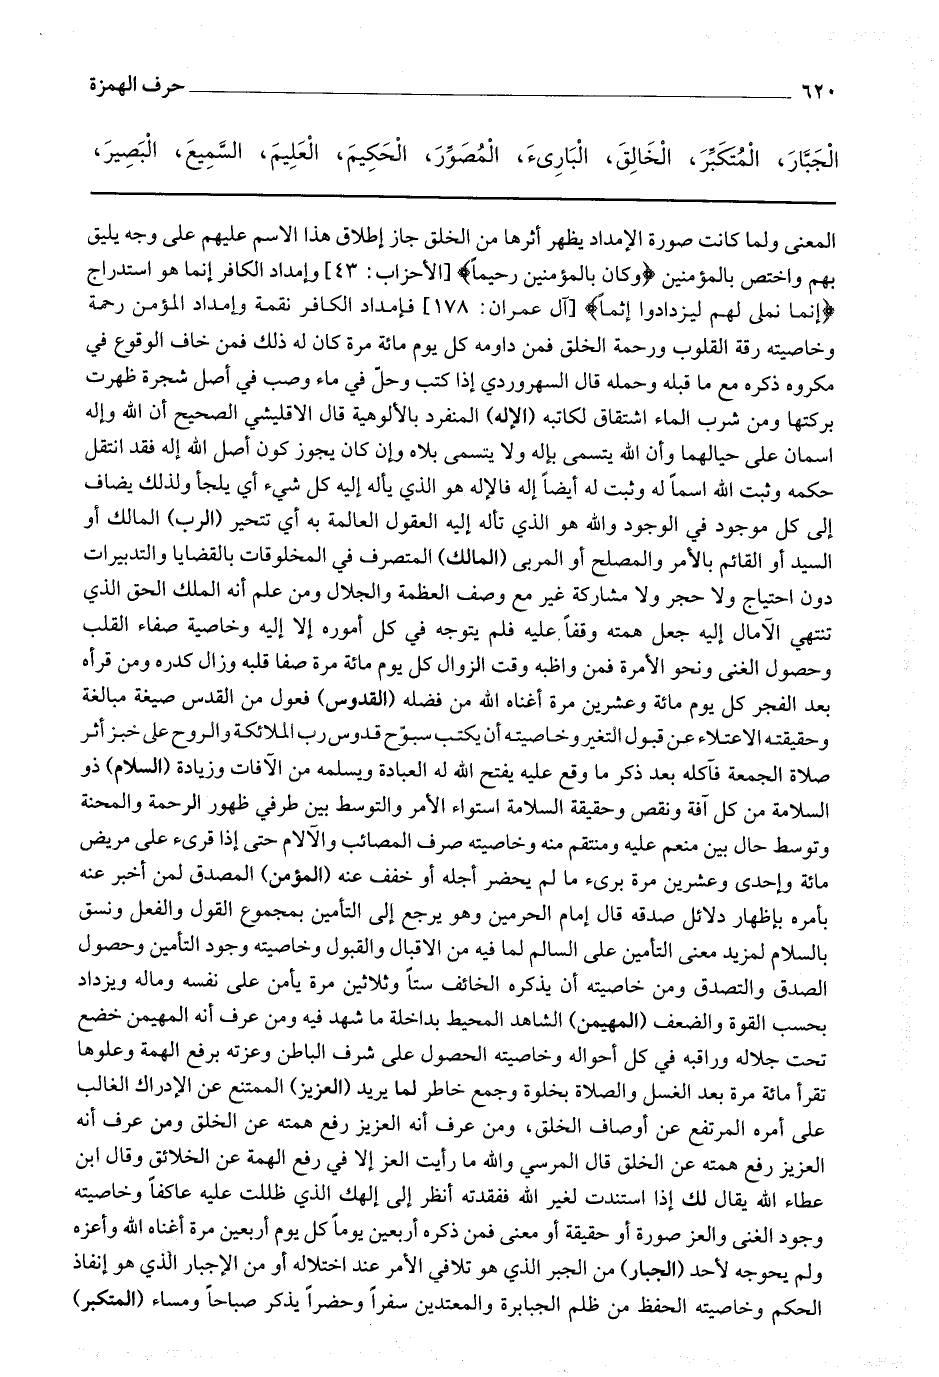 ٦٢٠ حرف الهمزة
الْجَبَّارَ، الْمُتَكَبِّرَ، الْخَالِقَ، الْبَارِىءَ، الْمُصَوِّرَ، الْحَكِيمَ، الْعَلِيمَ، السَّمِيعَ، الْبَصِيرَ،
المعنى ولما كانت صورة الإمداد يظهر أثرها من الخلق جاز إطلاق هذا الاسم عليهم على وجه يليق
بهم واختص بالمؤمنين ﴿وكان بالمؤمنين رحيماً﴾ [الأحزاب: ٤٣] وإمداد الكافر إنما هو استدراج
﴿إنما نملي لهم ليزدادوا إثماً﴾ [آل عمران: ١٧٨] فإمداد الكافر نقمة وإمداد المؤمن رحمة
وخاصيته رقة القلوب ورحمة الخلق فمن داومه كل يوم مائة مرة كان له ذلك فمن خاف الوقوع في
مكروه ذكره مع ما قبله وحمله قال السهروردي إذا كتب وحلّ في ماء وصب في أصل شجرة ظهرت
بركتها ومن شرب الماء اشتقاق لكاتبه (الإله) المنفرد بالألوهية قال الاقليشي الصحيح أن الله وإله
اسمان على حيالهما وأن الله يتسمى بإله ولا يتسمى بلاه وإن كان يجوز كون أصل الله إله فقد انتقل
حكمه وثبت الله اسماً له وثبت له أيضاً إله فالإله هو الذي يأله إليه كل شيء أي يلجأ ولذلك يضاف
إلى كل موجود في الوجود والله هو الذي تأله إليه العقول العالمة به أي تتحير (الرب) المالك أو
السيد أو القائم بالأمر والمصلح أو المربى (المالك) المتصرف في المخلوقات بالقضايا والتدبيرات
دون احتياج ولا حجر ولا مشاركة غير مع وصف العظمة والجلال ومن علم أنه الملك الحق الذي
تنتهي الآمال إليه جعل همته وقفاً عليه فلم يتوجه في كل أموره إلا إليه وخاصية صفاء القلب
وحصول الغنى ونحو الأمرة فمن واظبه وقت الزوال كل يوم مائة مرة صفا قلبه وزال كدره ومن قرأه
بعد الفجر كل يوم مائة وعشرين مرة أغناه الله من فضله (القدوس) فعول من القدس صيغة مبالغة
وحقيقته الاعتلاء عن قبول التغير وخاصيته أن يكتب سبوّح قدوس رب الملائكة والروح على خبز أثر
صلاة الجمعة فآكله بعد ذكر ما وقع عليه يفتح الله له العبادة ويسلمه من الآفات وزيادة (السلام) ذو
السلامة من كل آفة ونقص وحقيقة السلامة استواء الأمر والتوسط بين طرفي ظهور الرحمة والمحنة
وتوسط حال بين منعم عليه ومنتقم منه وخاصيته صرف المصائب والآلام حتى إذا قرىء على مريض
مائة وإحدى وعشرين مرة برىء ما لم يحضر أجله أو خفف عنه (المؤمن) المصدق لمن أخبر عنه
بأمره بإظهار دلائل صدقه قال إمام الحرمين وهو يرجع إلى التأمين بمجموع القول والفعل ونسق
بالسلام لمزيد معنى التأمين على السالم لما فيه من الاقبال والقبول وخاصيته وجود التأمين وحصول
الصدق والتصدق ومن خاصيته أن يذكره الخائف ستاً وثلاثين مرة يأمن على نفسه وماله ويزداد
بحسب القوة والضعف (المهيمن) الشاهد المحيط بداخلة ما شهد فيه ومن عرف أنه المهيمن خضع
تحت جلاله وراقبه في كل أحواله وخاصيته الحصول على شرف الباطن وعزته برفع الهمة وعلوها
تقرأ مائة مرة بعد الغسل والصلاة بخلوة وجمع خاطر لما يريد (العزيز) الممتنع عن الإدراك الغالب
على أمره المرتفع عن أوصاف الخلق، ومن عرف أنه العزيز رفع همته عن الخلق ومن عرف أنه
العزيز رفع همته عن الخلق قال المرسي والله ما رأيت العز إلا في رفع الهمة عن الخلائق وقال ابن
عطاء الله يقال لك إذا استندت لغير الله ففقدته أنظر إلى إلهك الذي ظللت عليه عاكفاً وخاصيته
وجود الغنى والعز صورة أو حقيقة أو معنى فمن ذكره أربعين يوماً كل يوم أربعين مرة أغناه الله وأعزه
ولم يحوجه لأحد (الجبار) من الجبر الذي هو تلافي الأمر عند اختلاله أو من الإجبار الذي هو إنفاذ
الحكم وخاصيته الحفظ من ظلم الجبابرة والمعتدين سفراً وحضراً يذكر صباحاً ومساء (المتكبر)